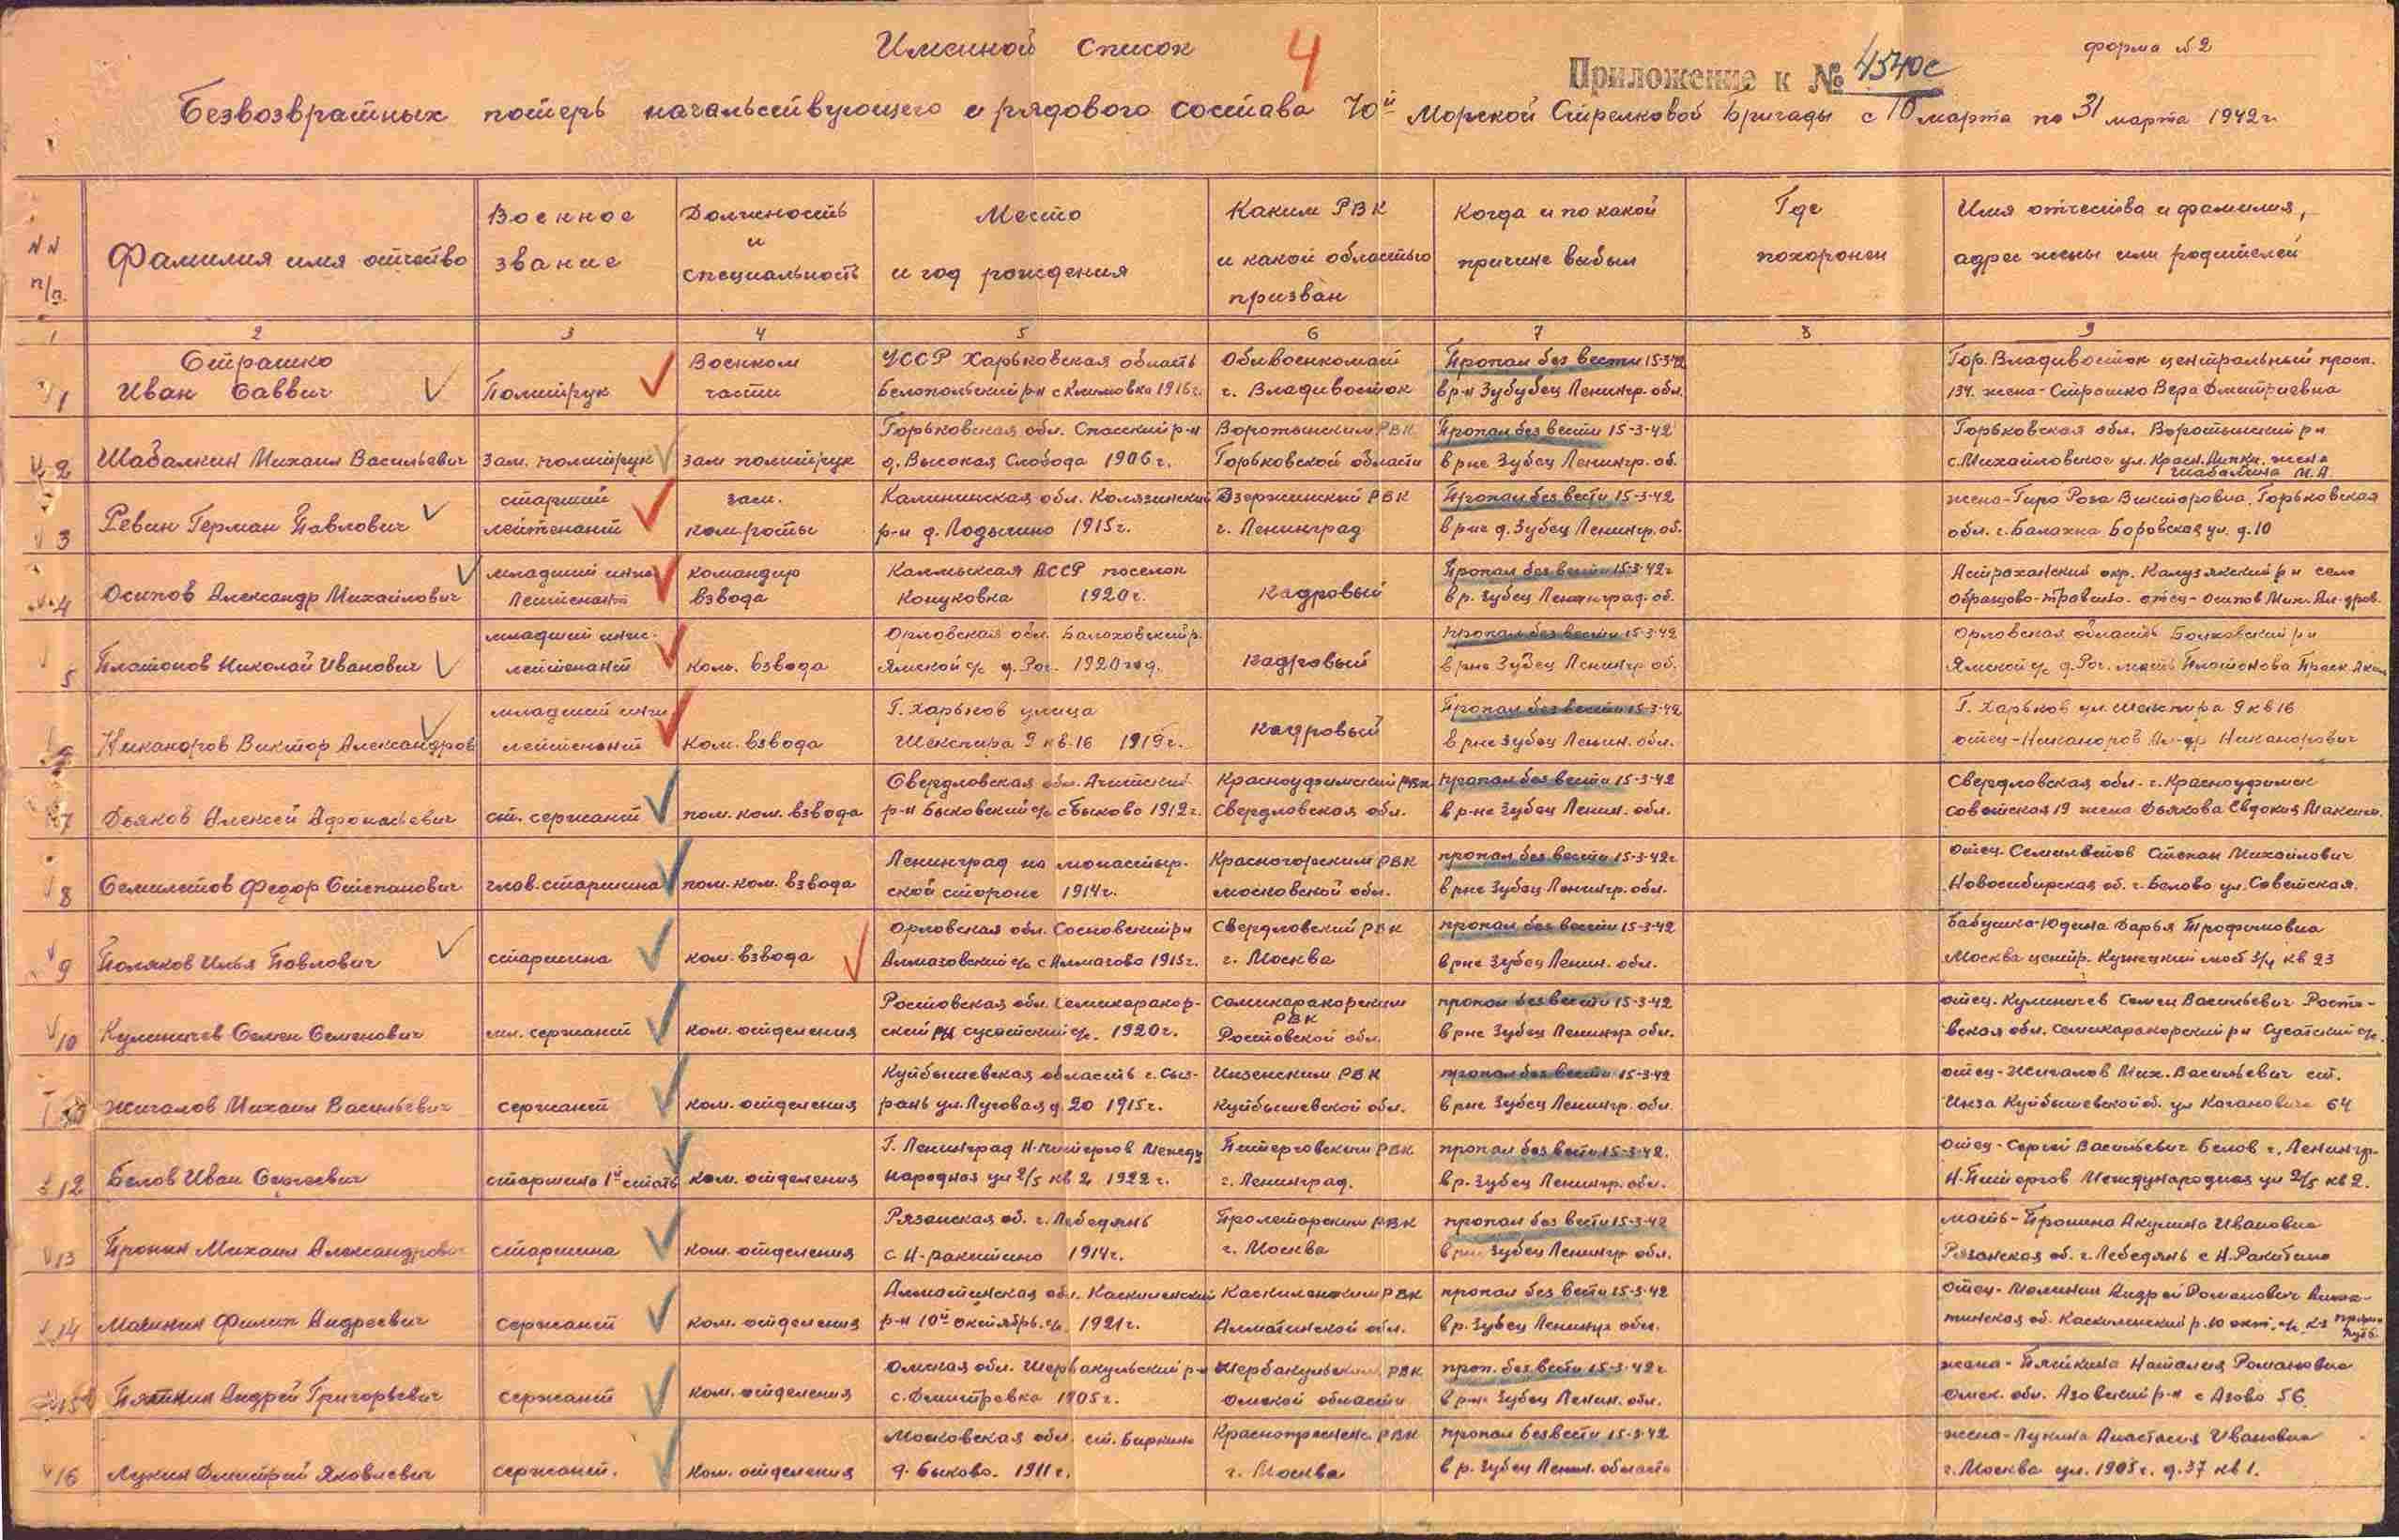 Именной список
4
Приложение к № 4540с
форма №2
Безвозвратных потерь начальствующего и рядового состава 70й Морской Стрелковой Бригады с 10 марта по 31 марта 1942 г.
NN п/п.
Фамилия имя отчество
Военное звание
Должность и специальность
Место и год рождения
Каким РВК и какой областью призван
Когда и по какой причине выбыл
Где похоронен
Имя отчество и фамилия, адрес жены или родителей
1 2 3 4 5 6 7 8 9
Страшко Военком УССР Харьковская область Облвоенкомат Пропал без вести 15-3-42 Гор. Владивосток центральный просп.
1 Иван Саввич Политрук части Белопольский р-н с Климовка 1916 г. г. Владивосток в р-н Зубубец Ленингр. обл. 134. жена-Страшко Вера Дмитриевна
Горьковская обл. Спасский р-н Воротынским РВК Пропал без вести 15-3-42 Горьковская обл. Воротынский р н
2 Шабалкин Михаил Васильевич Зам. политрук зам политрук д. Высокая Слобода 1906 г. Горьковской области в рне Зубец Ленингр. об. с. Михайловское ул. Красн. жена
Шабалкина М.А
старший зам. Калининская обл. Колязинский Дзержинский РВК Пропал без вести 15-3-42 жена-Гиро Роза Викторовна. Горьковская
3 Ревин Герман Павлович лейтенант ком.роты р-н д. Лодыгино 1915 г. г. Ленинград в рне д. Зубец Ленингр. об. обл. г. Балахна Боровская ул. д. 10
младший командир Калмыксая АССР поселок Пропал без вести 15-3-42 г Астраханский окр. р н село
4 Осипов Александр Михайлович Лейтенант взвода Кануковка 1920 г. кадровый в р. Зубец Ленинград. об. Образцово-травино. отец-Осипов Мих. Ал-дров.
младший Орловская обл. р. Пропал без вести 15-3-42 Орловская область р н
5 Платонов Николай Иванович лейтенант ком. взвода Ямской с/с д. Рог. 1920 год. кадровый в рне Зубец Ленингр об. Ямской с/с д. Рог. мать Платонова
младший Г. Харьков улица Пропал без вести 15-3-42 Г. Харьков ул. Шекспира 9 кв 16
Никаноров Виктор Александров лейтенант ком. взвода Шекспира 9 кв. 16 1919 г. кадровый в рне Зубец Ленин. обл. отец-Никаноров Ал-др Никанорович
Свердловская обл. Ачитский Красноуфимский РВК Пропал без вести 15-3-42 Свердловская обл. г. Красноуфимск
7 Дьяков Алексей Афонасьевич ст. сержант пом. ком. взвода р-н Быковский с/с с Быково 1912 г. Свердловская обл. в р-не Зубец Ленин. обл. Советская 19 жена Дьякова Евдокия Максим.
Ленинград на монастыр- Красногорским РВК пропал без вести 15-3-42 г отец Степан Михайлович
8 Семилетов Федор Степанович глав. старшина пом. ком. взвода ской стороне 1914 г. Московской обл. в рне Зубец Ленингр. обл. Новосибирская об. г. Белово ул. Советская.
Орловская обл. Сосновский рн Свердловский РВК пропал без вести 15-3-42 Бабушка-Юдина Дарья Трофимовна
9 Поляков Илья Павлович старшина ком. взвода Алмазовский с/с с Алмазово 1915 г. г. Москва в рне Зубец Ленин. обл. Москва центр. Кузнецкий мост 3/4 кв 23
Ростовская обл. Семикаракор- Семикаракорским РВК пропал без вести 15-3-42 отец. Кулиничев Семен Васильевич Росто-
10 Кулиничев Семен Семенович мл. сержант ком. отделения ский рн сусатский с/с. 1920 г. Ростовской обл. в рне Зубец Ленингр обл. вская обл. семикаракорский р н Сусатский с/с.
Куйбышевская область г. Сыз- Инзенским РВК пропал без вести 15-3-42 отец-Жигалов Мих. Васильевич ст.
Жигалов Михаил Васильевич сержант ком. отделения рань ул. Луговая д. 20 1915 г. Куйбышевской обл. в рне Зубец Ленингр. обл. Инза Куйбышевской об. ул Кагановича 64
Г. Ленинград Н-питергов Между Питерговским РВК пропал без вести 15-3-42. Отец-Сергей Васильевич Белов г. Ленингр.
12 Белов Иван Сергеевич старшина 1й стать ком. отделения народная ул 2/5 кв 2 1922 г. г. Ленинград. в р. Зубец Ленингр. обл. Н-Питергов Международная ул 2/5 кв 2.
Рязанская об. г. Лебедянь Пролетарским РВК пропал без вести 15-3-42 мать-Пронина Акулина Ивановна
13 Пронин Михаил Александрович старшина ком. отделения с Н-ракитино 1914 г. г. Москва в рне Зубец Ленингр обл. Рязанская об. г. Лебедянь с Н. Ракитино
Алматинская обл. Каскеленский Каскеленским РВК пропал без вести 15-3-42 Отец-Малинин Андрей Романович Алма-
14 Малинин Филип Андреевич сержант ком. отделения р-н 10й октябрь. с/с. 1921 г. Алматинской обл. в р. Зубец Ленингр обл. тинская об. Каскеленский р. 10 окт. с/с к-з
Омская обл. Шербакульский р-н Шербакульским РВК проп. без вести 15-3-42 г жена-Пяткина Наталия Романовна
15 Пяткин Андрей Григорьевич сержант ком. отделения с. Дмитревка 1905 г. Омской области в р-не Зубец Ленин. обл. Омск. обл. Азовский р-н с Азово 56
Московская обл. ст. Бирюли РВК пропал без вести 15-3-42 жена-Лукина Анастасия Ивановна
16 Лукин Дмитрий Яковлевич сержант. ком. отделения д. Быково. 1911 г. г. Москва в р. Зубец Ленин. область г. Москва ул. 1905 г. д. 37 кв 1.